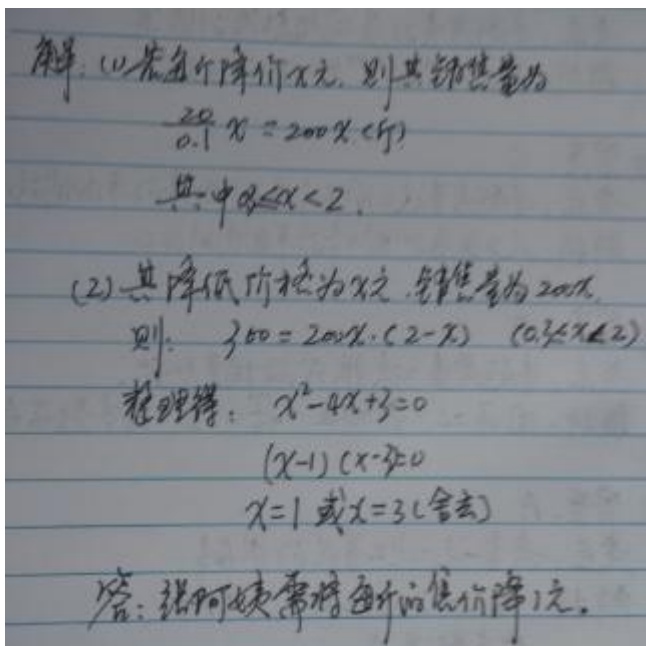 解:(1)若每斤降价x元,则其销售量为
20/0.1 x = 200x (斤)
其中 ≤x<2.
(2)其降低价格为x元,销售量为200x,
则: 300=200x·(2-x) (0.3≤x<2)
整理得: x²-4x+3=0
(x-1)(x-3)=0
x=1 或 x=3(舍去)
答:张阿姨需将每斤的售价降1元.